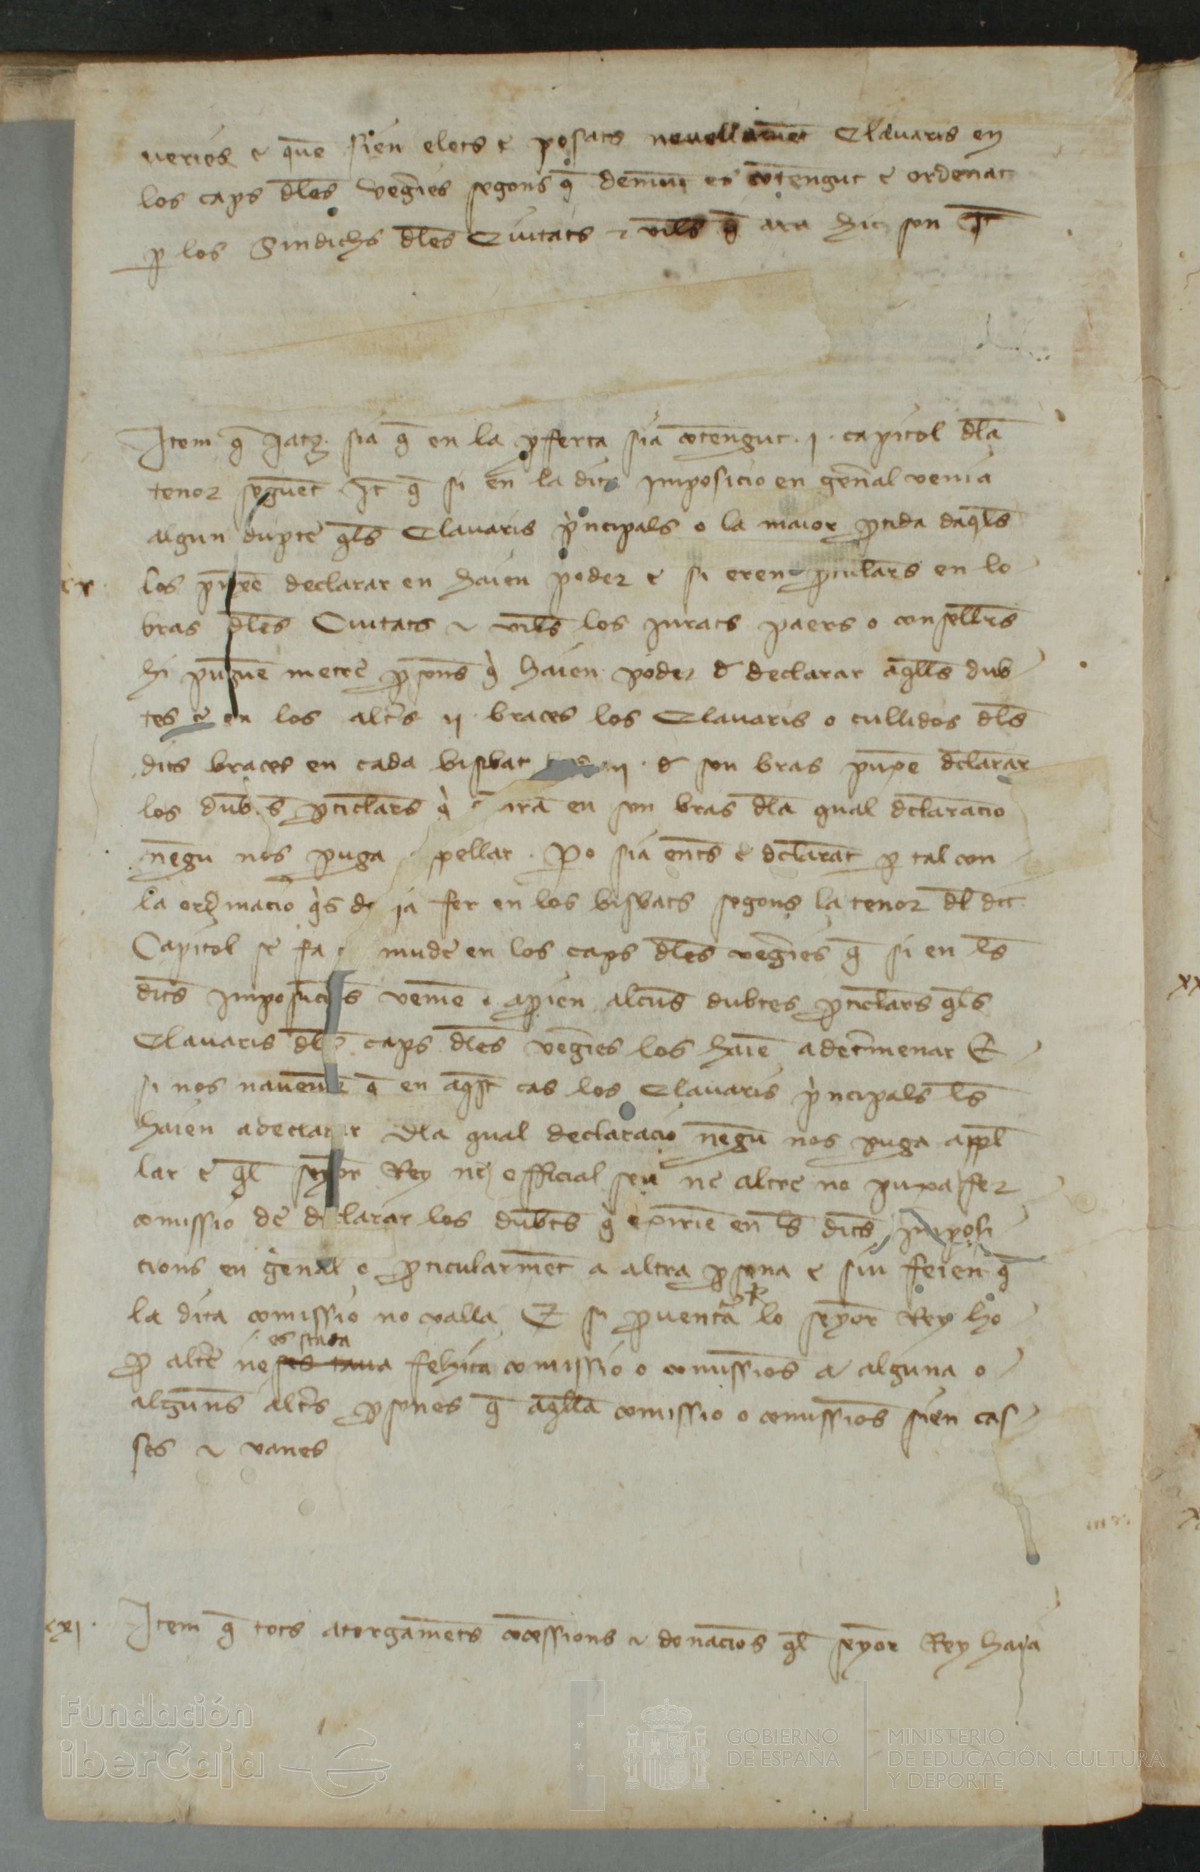 ueries e que sien elets e posats nouellamēt Clauaris en
los caps dl̄es vegīes segons q̄ demun es cōtengut e ordenat
ꝑ los Sindichs dl̄es Ciutats ⁊ uil̄s q̄ ara hic son
Item q̄ jatz sia q̄ en la ꝓferta sia cōtengut .j. capitol dl̄a
tenor seguēt It̄ q̄ si en la dita Imposicio en gen̄al venia
algun dupte q̄ls Clauaris pⁱncipals o la maior ꝑtida daq̄ls
los puxē declarar en haien poder e si eren ꝑticulars en lo
bras dl̄es Ciutats ⁊ uil̄s los jurats paers o consellr̄s
hi puxē metre ꝑsons qⁱ haien poder d declarar aq̄lls dub
tes e en los altr̄s ij braces los Clauaris o cullidos dl̄s
dits braces en cada bisbat ij d son bras puxē dclarar
los dub s ꝑticlars qⁱ irā en son bras dl̄a qual dclaracio
negu nos puga pellar . Ꝑo sia entˢ e dclarat ꝑ tal con
la ordinacio qⁱs de ja fer en los bisbats segons la tenor dl̄ dit
Capitol se fa mude en los caps dl̄es vegīes q̄ si en l̄s
dit̄s Imposiciōs venie apien alcun̄s dubtes ꝑticlars q̄ls
Clauaris dl̄ caps dl̄es vegīes los haiē a det̄menar E
si nos nauenie q̄ en aq̄st cas los Clauaris pⁱncipals l̄s
haien a declarar dl̄a qual declaracio negū nos puga appl̄
lar e q̄l senyor Rey ne official seu ne altre no puxa fer
comissio de declarar los dubt̄s qⁱ exirīe en l̄s dit̄s Imposi
cions en gen̄al o ꝑticularmēt a altra ꝑsona e siu feien q̄
la dita comissio no valla E si ꝑuentᵃ lo senyor Rey ho
ꝑ altre ne es stada feħita comissio o comissiōs a alguna o
algun̄s altr̄s ꝑsones q̄ aq̄lla comissio o comissiōs sien cas
ses ⁊ vanes
cxj. Item q̄ tots atorgamēts cōcessions ⁊ donaciōs q̄l senyor Rey haja
Fundación
iberCaja
GOBIERNO
DE ESPAÑA
MINISTERIO
DE EDUCACIÓN, CULTURA
Y DEPORTE